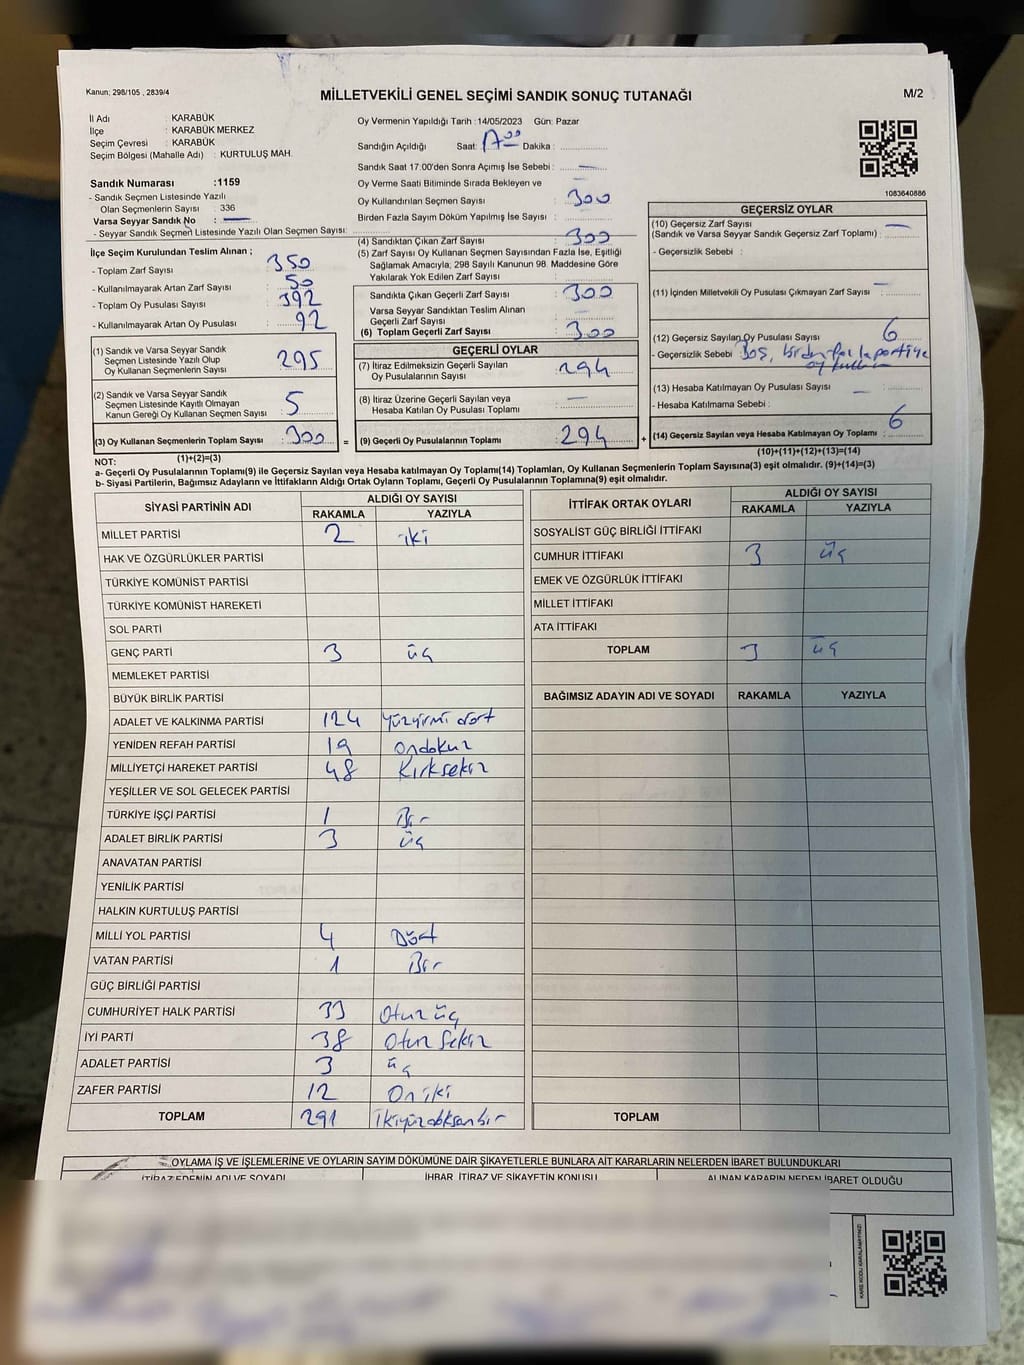 Kanun; 298/105 , 2839/4
MİLLETVEKİLİ GENEL SEÇİMİ SANDIK SONUÇ TUTANAĞI
M/2
İl Adı : KARABÜK
İlçe : KARABÜK MERKEZ
Seçim Çevresi : KARABÜK
Seçim Bölgesi (Mahalle Adı) : KURTULUŞ MAH.
Sandık Numarası :1159
- Sandık Seçmen Listesinde Yazılı
Olan Seçmenlerin Sayısı : 336
Varsa Seyyar Sandık No : —
- Seyyar Sandık Seçmen Listesinde Yazılı Olan Seçmen Sayısı:
Oy Vermenin Yapıldığı Tarih :14/05/2023 Gün: Pazar
Sandığın Açıldığı Saat: Dakika :
Sandık Saat 17:00'den Sonra Açımış İse Sebebi : —
Oy Verme Saati Bitiminde Sırada Bekleyen ve
Oy Kullandırılan Seçmen Sayısı : 300
Birden Fazla Sayım Döküm Yapılmış İse Sayısı :
1083640886
İlçe Seçim Kurulundan Teslim Alınan ;
- Toplam Zarf Sayısı : 350
- Kullanılmayarak Artan Zarf Sayısı : 50
- Toplam Oy Pusulası Sayısı : 392
- Kullanılmayarak Artan Oy Pusulası : 92
(1) Sandık ve Varsa Seyyar Sandık
Seçmen Listesinde Yazılı Olup
Oy Kullanan Seçmenlerin Sayısı : 295
(2) Sandık ve Varsa Seyyar Sandık
Seçmen Listesinde Kayıtlı Olmayan
Kanun Gereği Oy Kullanan Seçmen Sayısı : 5
(3) Oy Kullanan Seçmenlerin Toplam Sayısı : 300 =
(1)+(2)=(3)
(4) Sandıktan Çıkan Zarf Sayısı : 300
(5) Zarf Sayısı Oy Kullanan Seçmen Sayısından Fazla İse, Eşitliği
Sağlamak Amacıyla, 298 Sayılı Kanunun 98. Maddesine Göre
Yakılarak Yok Edilen Zarf Sayısı :
Sandıkta Çıkan Geçerli Zarf Sayısı : 300
Varsa Seyyar Sandıktan Teslim Alınan
Geçerli Zarf Sayısı :
(6) Toplam Geçerli Zarf Sayısı : 300
GEÇERLİ OYLAR
(7) İtiraz Edilmeksizin Geçerli Sayılan
Oy Pusulalarının Sayısı : 294
(8) İtiraz Üzerine Geçerli Sayılan veya
Hesaba Katılan Oy Pusulası Toplamı : —
(9) Geçerli Oy Pusulalarının Toplamı : 294 +
GEÇERSİZ OYLAR
(10) Geçersiz Zarf Sayısı
(Sandık ve Varsa Seyyar Sandık Geçersiz Zarf Toplamı) : —
- Geçersizlik Sebebi :
(11) İçinden Milletvekili Oy Pusulası Çıkmayan Zarf Sayısı : —
(12) Geçersiz Sayılan Oy Pusulası Sayısı : 6
- Geçersizlik Sebebi : Boş, birden fazla partiye
(13) Hesaba Katılmayan Oy Pusulası Sayısı : —
- Hesaba Katılmama Sebebi :
(14) Geçersiz Sayılan veya Hesaba Katılmayan Oy Toplamı : 6
(10)+(11)+(12)+(13)=(14)
NOT:
a- Geçerli Oy Pusulalarının Toplamı(9) ile Geçersiz Sayılan veya Hesaba katılmayan Oy Toplamı(14) Toplamları, Oy Kullanan Seçmenlerin Toplam Sayısına(3) eşit olmalıdır. (9)+(14)=(3)
b- Siyasi Partilerin, Bağımsız Adayların ve İttifakların Aldığı Ortak Oyların Toplamı, Geçerli Oy Pusulalarının Toplamına(9) eşit olmalıdır.
SİYASİ PARTİNİN ADI ALDIĞI OY SAYISI
RAKAMLA YAZIYLA
MİLLET PARTİSİ 2 iki
HAK VE ÖZGÜRLÜKLER PARTİSİ
TÜRKİYE KOMÜNİST PARTİSİ
TÜRKİYE KOMÜNİST HAREKETİ
SOL PARTİ
GENÇ PARTİ 3 üç
MEMLEKET PARTİSİ
BÜYÜK BİRLİK PARTİSİ
ADALET VE KALKINMA PARTİSİ 124 Yüzyirmi dört
YENİDEN REFAH PARTİSİ 19 Ondokuz
MİLLİYETÇİ HAREKET PARTİSİ 48 Kırksekiz
YEŞİLLER VE SOL GELECEK PARTİSİ
TÜRKİYE İŞÇİ PARTİSİ 1 Bir
ADALET BİRLİK PARTİSİ 3 üç
ANAVATAN PARTİSİ
YENİLİK PARTİSİ
HALKIN KURTULUŞ PARTİSİ
MİLLİ YOL PARTİSİ 4 Dört
VATAN PARTİSİ 1 Bir
GÜÇ BİRLİĞİ PARTİSİ
CUMHURİYET HALK PARTİSİ 33 Otuz üç
İYİ PARTİ 38 Otuz Sekiz
ADALET PARTİSİ 3 üç
ZAFER PARTİSİ 12 On iki
TOPLAM 291 ikiyüzdoksanbir
İTTİFAK ORTAK OYLARI ALDIĞI OY SAYISI
RAKAMLA YAZIYLA
SOSYALİST GÜÇ BİRLİĞİ İTTİFAKI
CUMHUR İTTİFAKI 3 üç
EMEK VE ÖZGÜRLÜK İTTİFAKI
MİLLET İTTİFAKI
ATA İTTİFAKI
TOPLAM 3 üç
BAĞIMSIZ ADAYIN ADI VE SOYADI RAKAMLA YAZIYLA
TOPLAM
OYLAMA İŞ VE İŞLEMLERİNE VE OYLARIN SAYIM DÖKÜMÜNE DAİR ŞİKAYETLERLE BUNLARA AİT KARARLARIN NELERDEN İBARET BULUNDUKLARI
İTİRAZ EDENİN ADI VE SOYADI İHBAR, İTİRAZ VE ŞİKAYETİN KONUSU ALINAN KARARIN NEDEN İBARET OLDUĞU
KARE KODU KARALAMAYINIZ!